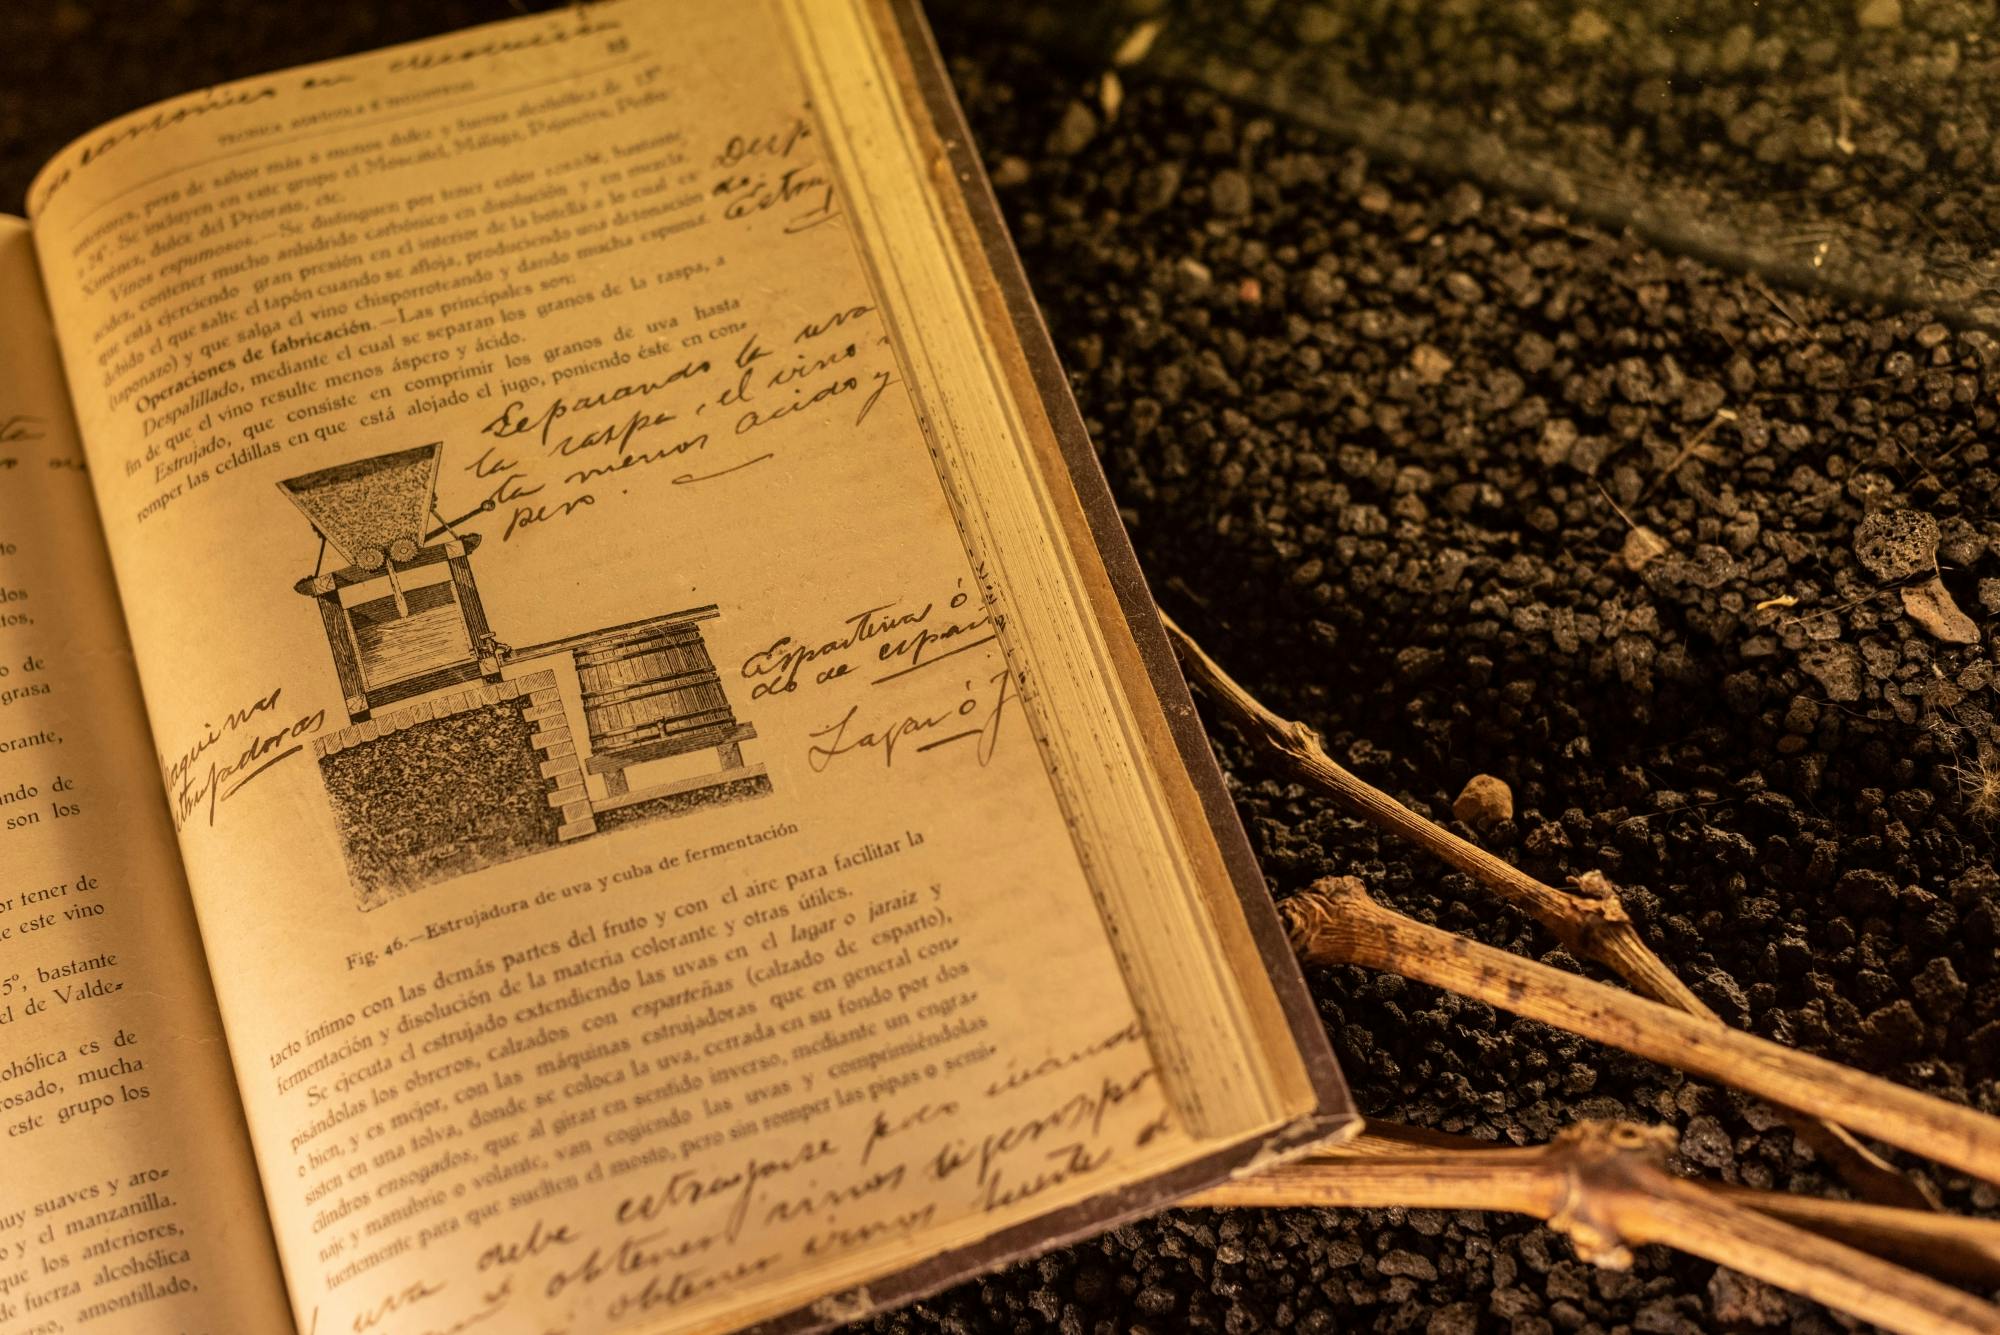 en disolución
TECNICA AGRÍCOLA E INDUSTRIAL
anteriores, pero de sabor más o menos dulce y fuerza alcohólica de 15°
a 24°. Se incluyen en este grupo el Moscatel, Málaga, Pajarete, Pedro
Ximénez, dulce del Priorato, etc.
Vinos espumosos.—Se distinguen por tener color rosado, bastante
acidez, contener mucho anhidrido carbónico en disolución y en mezcla,
que está ejerciendo gran presión en el interior de la botella a lo cual es
debido el que salte el tapón cuando se afloja, produciendo una detonación
(taponazo) y que salga el vino chisporroteando y dando mucha espuma.
Operaciones de fabricación.—Las principales son:
Despalillado, mediante el cual se separan los granos de la raspa, a
fin de que el vino resulte menos áspero y ácido.
Estrujado, que consiste en comprimir los granos de uva hasta
romper las celdillas en que está alojado el jugo, poniendo éste en con-
Separando la uva
la raspa, el vino
menos acido y
pero.
Esparteñas ó
do de
Lagar ó J
Maquinas
estrujadoras
Fig. 46.—Estrujadora de uva y cuba de fermentación
tacto íntimo con las demás partes del fruto y con el aire para facilitar la
fermentación y disolución de la materia colorante y otras útiles.
Se ejecuta el estrujado extendiendo las uvas en el lagar o jaraiz y
pisándolas los obreros, calzados con esparteñas (calzado de esparto),
o bien, y es mejor, con las máquinas estrujadoras que en general con-
sisten en una tolva, donde se coloca la uva, cerrada en su fondo por dos
cilindros ensogados, que al girar en sentido inverso, mediante un engra-
naje y manubrio o volante, van cogiendo las uvas y comprimiéndolas
fuertemente para que suelten el mosto, pero sin romper las pipas o semi-
uva debe estrujarse poco
obtener vinos ligeros
obtener vinos fuerte
to
dos
tos,
de
grasa
orante,
ando de
son los
or tener de
e este vino
5°, bastante
el de Valde-
cohólica es de
rosado, mucha
este grupo los
uy suaves y aro-
o y el manzanilla.
que los anteriores,
de fuerza alcohólica
rso, amontillado,